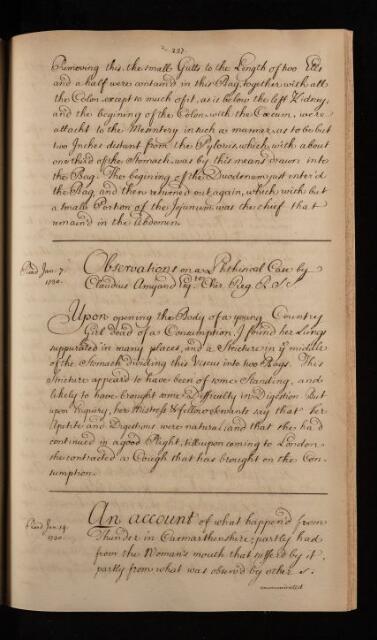 227.
Removing this, the small Gutts to the Length of two Ells
and a half were contain'd in this Bag, together with all
the Colon except so much of it, as is below the left Kidney,
and the begining of the Colon with the Cœcum, were
attacht to the Mesentery in such a manner, as to be but
two Inches distant from the Pylorus, which, with about
one third of the Stomach was by this means drawn into
the Bag. The begining of the Duodenum just enter'd
the Bag and then return'd out again, which with but
a small Portion of the Jejunum was the chief that
remain'd in the Abdomen.
Read Jan. 7.
1730.
Observations on a Phthisical Case by
Claudius Amyand Esq. Chir. Reg. R. S. S.
Upon opening the Body of a young Country
Girl dead of a Consumption, I found her Lungs
suppurated in many places, and a Stricture in ye middle
of the Stomach dividing this Viscus into two Bags. This
Stricture appeard to have been of some Standing, and
likely to have brought some Difficulty in Digestion But
upon Enquiry, her Mistress & fellow Servants say that her
Apetite and Digestions were natural, and that she had
continued in a good Plight, till upon coming to London
she contracted a Cough that has brought on the Con-
sumption.
Read Jan. 14.
1730.
An account of what happen'd from
Thunder in Carmarthenshire; partly had
from the Woman's mouth that suffer'd by it,
partly from what was observ'd by others.
communicated